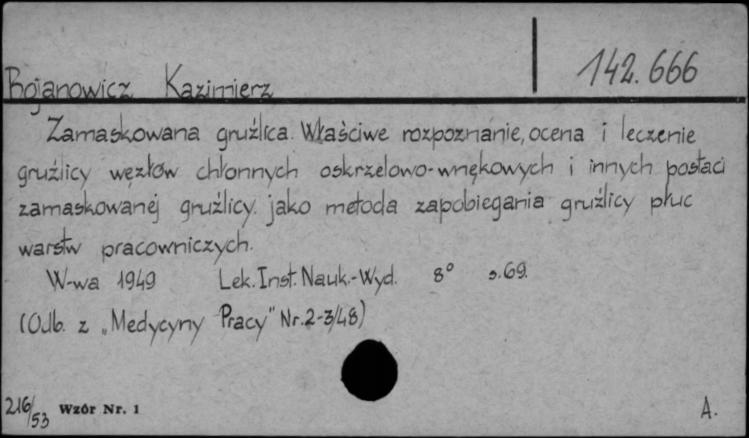 142.666
Bojanowicz Kazimierz
Zamaskowana gruźlica. Właściwe rozpoznanie, ocena i leczenie
gruźlicy węzłów chłonnych oskrzelowo-wnękowych i innych postaci
zamaskowanej gruźlicy. jako metoda zapobiegania gruźlicy płuc
warstw pracowniczych.
W-wa 1949 Lek. Inst. Nauk.-Wyd. 8° s.69.
(Odb. z „Medycyny Pracy" Nr.2-3/48)
216/53 Wzór Nr. 1 A.